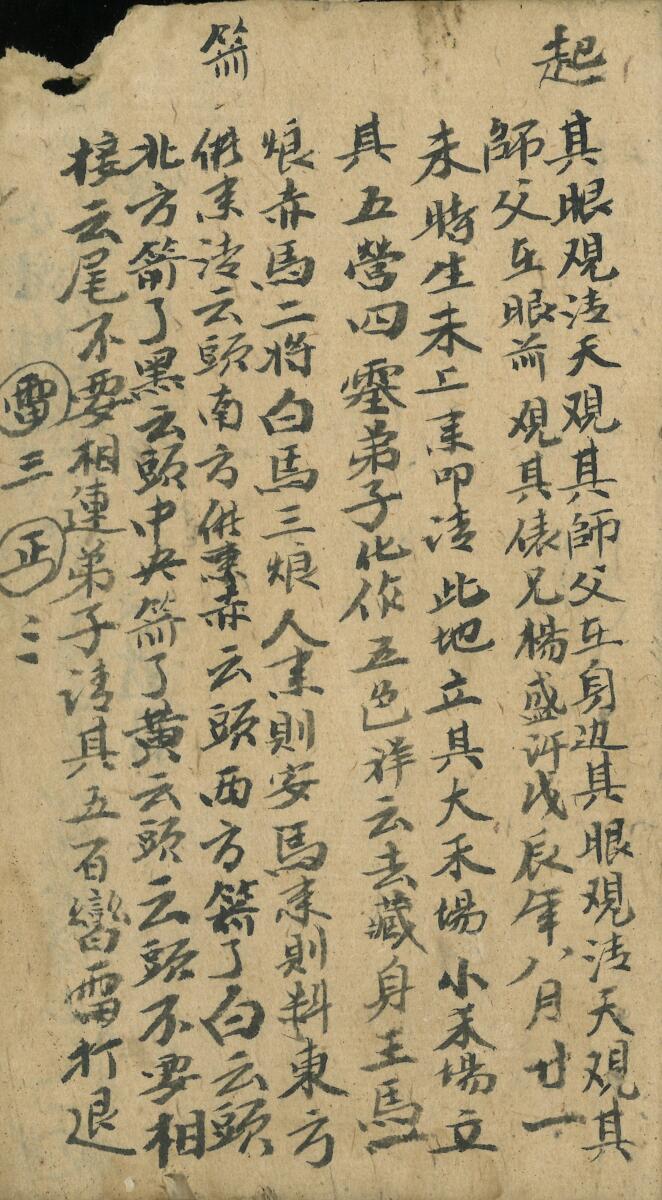 起
其眼观法天观其師父在身边其眼观法天观其
師父在眼前观其俵兄楊盛許戊辰年八月廿一
未時生未上来叩法此地立其大禾場小禾場立
其五營四寨弟子化作五色祥云去藏身王馬一
娘赤馬二将白馬三娘人来則安馬来則料東方
箭
供来清云頭南方供来赤云頭西方箭了白云頭
北方箭了黑云頭中央箭了黃云頭云頭不要相
接云尾不要相連弟子請其五百蠻雷打退
雷三正三